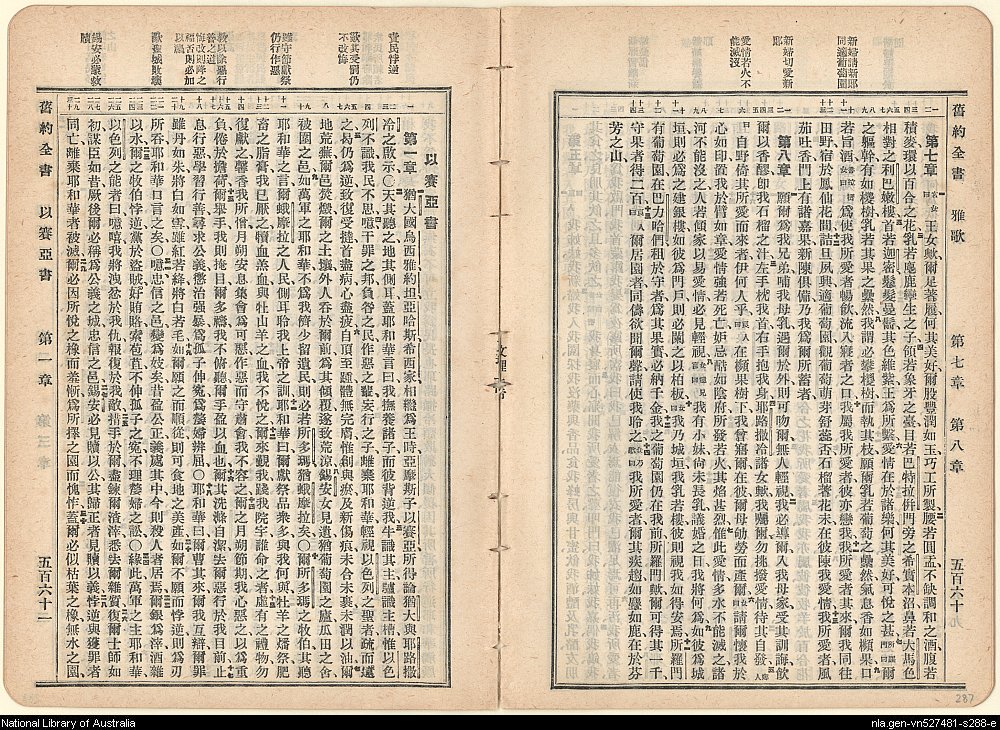 新婦請新郎
同適葡萄園
新婦切愛新
耶
愛情若火不
能滅沒
舊約全書 雅歌 第七章 第八章 五百六十
第七章 王女歟爾足著履何其美好爾股豐潤如玉巧工所製腰若圓盂不缺調和之酒腹若
積麥環以百合之花乳若麀鹿孿生之子頸若象牙之臺目若巴特拉併門旁之希實本沼鼻若大馬色
相對之利巴嫩樓首若迦密鬈髮曼鬋其色維紫王爲所繫愛情在於諸樂何其美好可悅之甚爾
之軀幹有如椶樹乳若其果之纍然我謂必攀椶樹而執其枝願爾乳若葡萄之纍然氣息香如頻果口
若旨酒爲使我所愛者暢飲流入寢者之口我屬我所愛者彼亦戀我我所愛者其來爾我同往
田野宿於鳳仙花間詰旦夙興適葡萄園觀葡萄萌芽舒蕊否石榴著花未在彼陳我愛情我所愛者風
茄吐香門上有諸嘉果新陳俱備乃我爲爾所蓄者
第八章 願爾爲我兄弟哺我母乳遇爾於外則可吻爾無人輕視我必導爾入我母家受其訓誨飲
爾以香醪卽我石榴之汁左手枕我首右手抱我身耶路撒冷諸女歟我囑爾勿挑撥愛情待其自發
自野倚其所愛而來者伊何人乎在頻果樹下我曾寤爾在彼爾母劬勞而產爾請爾懷我於
心如印置我於臂如章愛情強若死亡妒忌酷如陰府所發若火其焰甚烈惟此愛情多水不能滅之諸
河不能沒之人若傾家以易愛情必見輕視我有小妹尚未長乳議婚之日我將何爲如彼爲城
垣則必爲之建銀樓如彼爲門戶則必闌之以柏板我乃城垣我乳若樓彼則視我如得安焉所羅門
有葡萄園在巴力哈們租於守者爲其果實必納千金我之葡萄園仍在我前所羅門歟爾可得其一千
守果者得二百爾居園者同儔欲聞爾聲請使我聆之我所愛者爾其疾趨如麞如鹿在於芬
芳之山
文理
責民悖逆
歎其受罰仍
不改悔
雖守節獻祭
仍行作惡
敎以除惡行
善之道
悔改則降之
福否則必加
以禍
歎聖城敗壞
錫安必蒙救
贖
以賽亞書
第一章 猶大國烏西雅約坦亞哈斯希西家和樵爲王時亞摩斯子以賽亞所得默示論猶大與耶路撒
冷之啟示○天其聽之地其側耳蓋耶和華言曰我撫養諸子而彼背逆我牛識其主驢識主槽惟以色
列不識我民不思噫干罪之邦負咎之民作惡之裔妄行之子離棄耶和華輕視以色列之聖者疏而遠
之曷仍爲逆致復受撻首盡病心盡疲自頂至踵體無完膚惟創與瘀及新傷痕未合未裹未潤以油爾
地荒蕪爾之邑焚燬爾之土壤外人吞於爾前爲其傾覆遂致荒涼錫安女見遺猶葡萄園之廬瓜田之舍
被圍之邑如萬軍之耶和華不爲我儕少留遺民則必若所多瑪猶蛾摩拉矣○爾所多瑪之牧伯其聽
耶和華之言爾蛾摩拉之人民側耳聆我上帝之訓耶和華曰爾獻祭品衆多與我何與牡羊之燔祭肥
畜之脂膏我已厭之犢血羔血與牡山羊之血我不悅之爾來覲我踐我院宇誰命之者虛有之禮物勿
復獻之馨香我所憎月朔安息集會爲可惡作惡而守肅會我不容之爾之月朔節期我心惡之以爲重
負倦於擔荷爾舉手我則掩目爾多禱我不俯聽爾手盈以血也爾其洗滌自潔去爾惡行於我目前止
息行惡學習行善尋求公義懲治強暴爲孤子伸冤爲嫠婦辨屈○耶和華曰爾曹其來爾我互辯爾罪
雖丹如朱將白如雪雖紅若絳將白若毛如爾願之而順從則可食地之美產如爾不願而悖逆則爲刃
所吞耶和華口言之矣○噫忠信之邑變爲妓矣昔盈公正義處其中今則殺人者居焉爾銀爲滓酒雜
以水爾之牧伯悖逆黨於盜賊好賄賂索苞苴不伸孤子之冤不理嫠婦之訟○緣此萬軍之主耶和華
以色列之能者曰噫嘻我將洩忿於我仇報復於我敵措手於爾盡鍊爾渣滓悉去爾雜質復爾士師如
初謀臣如昔厥後爾必稱爲公義之城忠信之邑錫安必見贖以公其歸正者見贖以義悖逆與獲罪者
同亡離棄耶和華者被滅爾必因所悅之橡而羞慚爲所擇之園而愧怍蓋爾必似枯葉之橡無水之園
舊約全書 以賽亞書 第一章 五百六十二
287
National Library of Australia
nla.gen-vn527481-s288-e